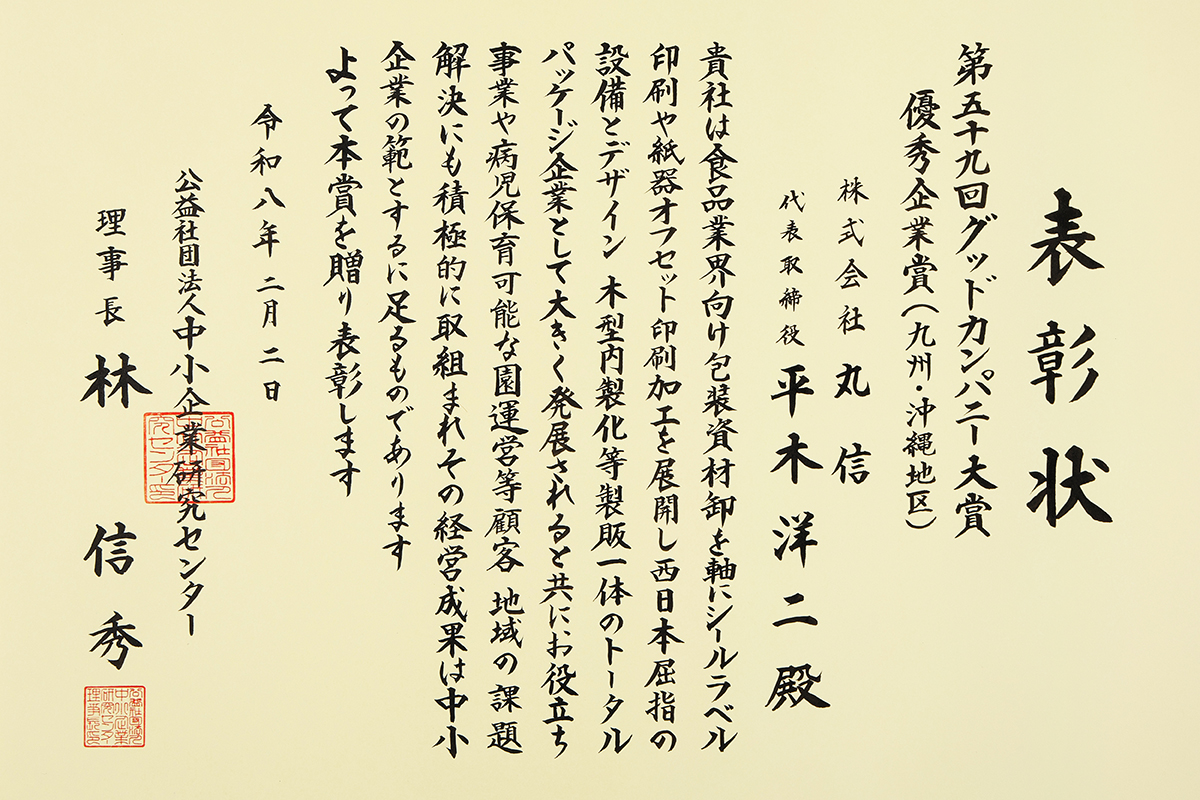 表彰状
第五十九回グッドカンパニー大賞
優秀企業賞(九州・沖縄地区)
株式会社 丸信
代表取締役 平木洋二殿
貴社は食品業界向け包装資材卸を軸にシールラベル
印刷や紙器オフセット印刷加工を展開し西日本屈指の
設備とデザイン 木型内製化等製販一体のトータル
パッケージ企業として大きく発展されると共にお役立ち
事業や病児保育可能な園運営等顧客 地域の課題
解決にも積極的に取組まれその経営成果は中小
企業の範とするに足るものであります
よって本賞を贈り表彰します
令和八年二月二日
公益社団法人中小企業研究センター
理事長 林 信秀